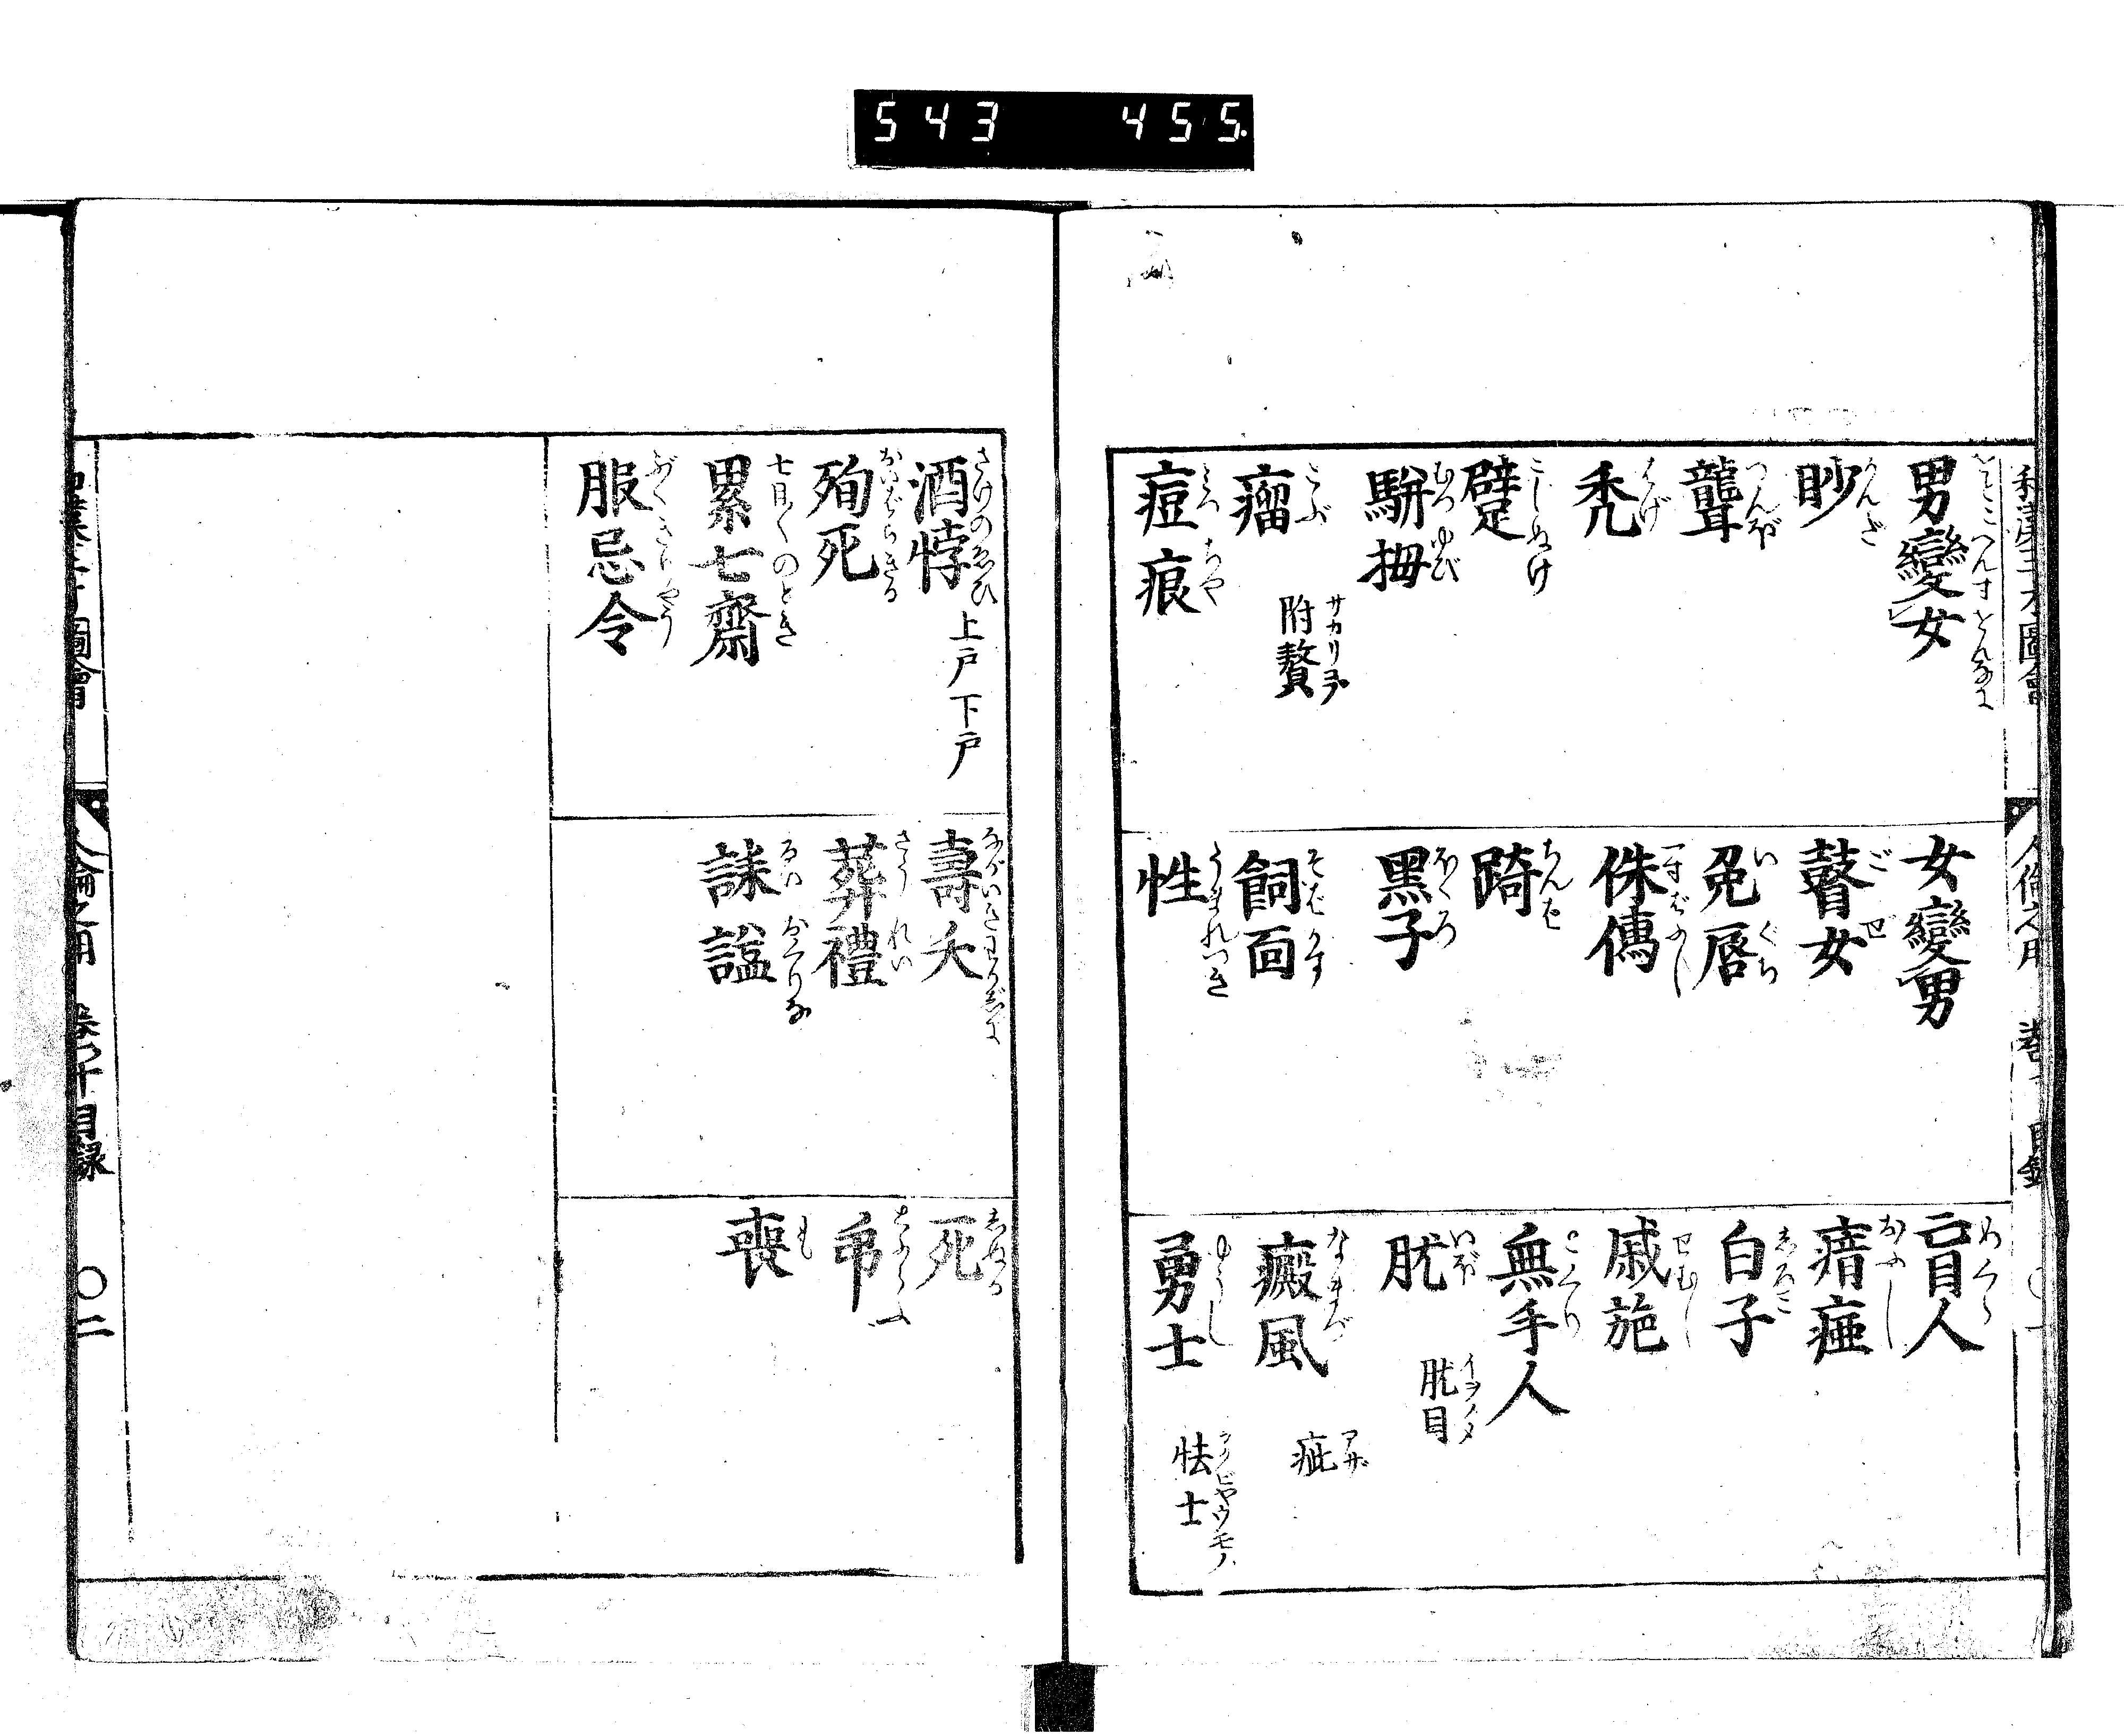 543 455
男變女 をとこへんすをんなに
女變男
盲人 めくら
眇 かんだ
瞽女 ごぜ
瘖瘂 おふし
聾 つんぼ
兔唇 いぐち
白子 しろこ
禿 はげ
侏儒 一寸ぼふし
戚施 せむし
躄 こしぬけ
踦 ちんば
無手人 とくり
駢拇 むつゆび
黑子 ほくろ
肬 いぼ
肬目 イヲノメ
瘤 こぶ
附贅 サカリコブ
飼面 そばかす
癜風 なまず
疵 アザ
痘痕 みつちや
性 うまれつき
勇士 ゆうし
怯士 ヲクビヤウモノ
酒悖 さけのゑひ 上戶下戶
壽夭 ながいきわかじに
死 しぬる
殉死 おいばらきる
葬禮 さうれい
弔 とふらふ
累七齋 七日〱のとき
誄謚 るい おくりな
喪 も
服忌令 ぶくきりやう
人倫之用 卷第十目錄 〇二